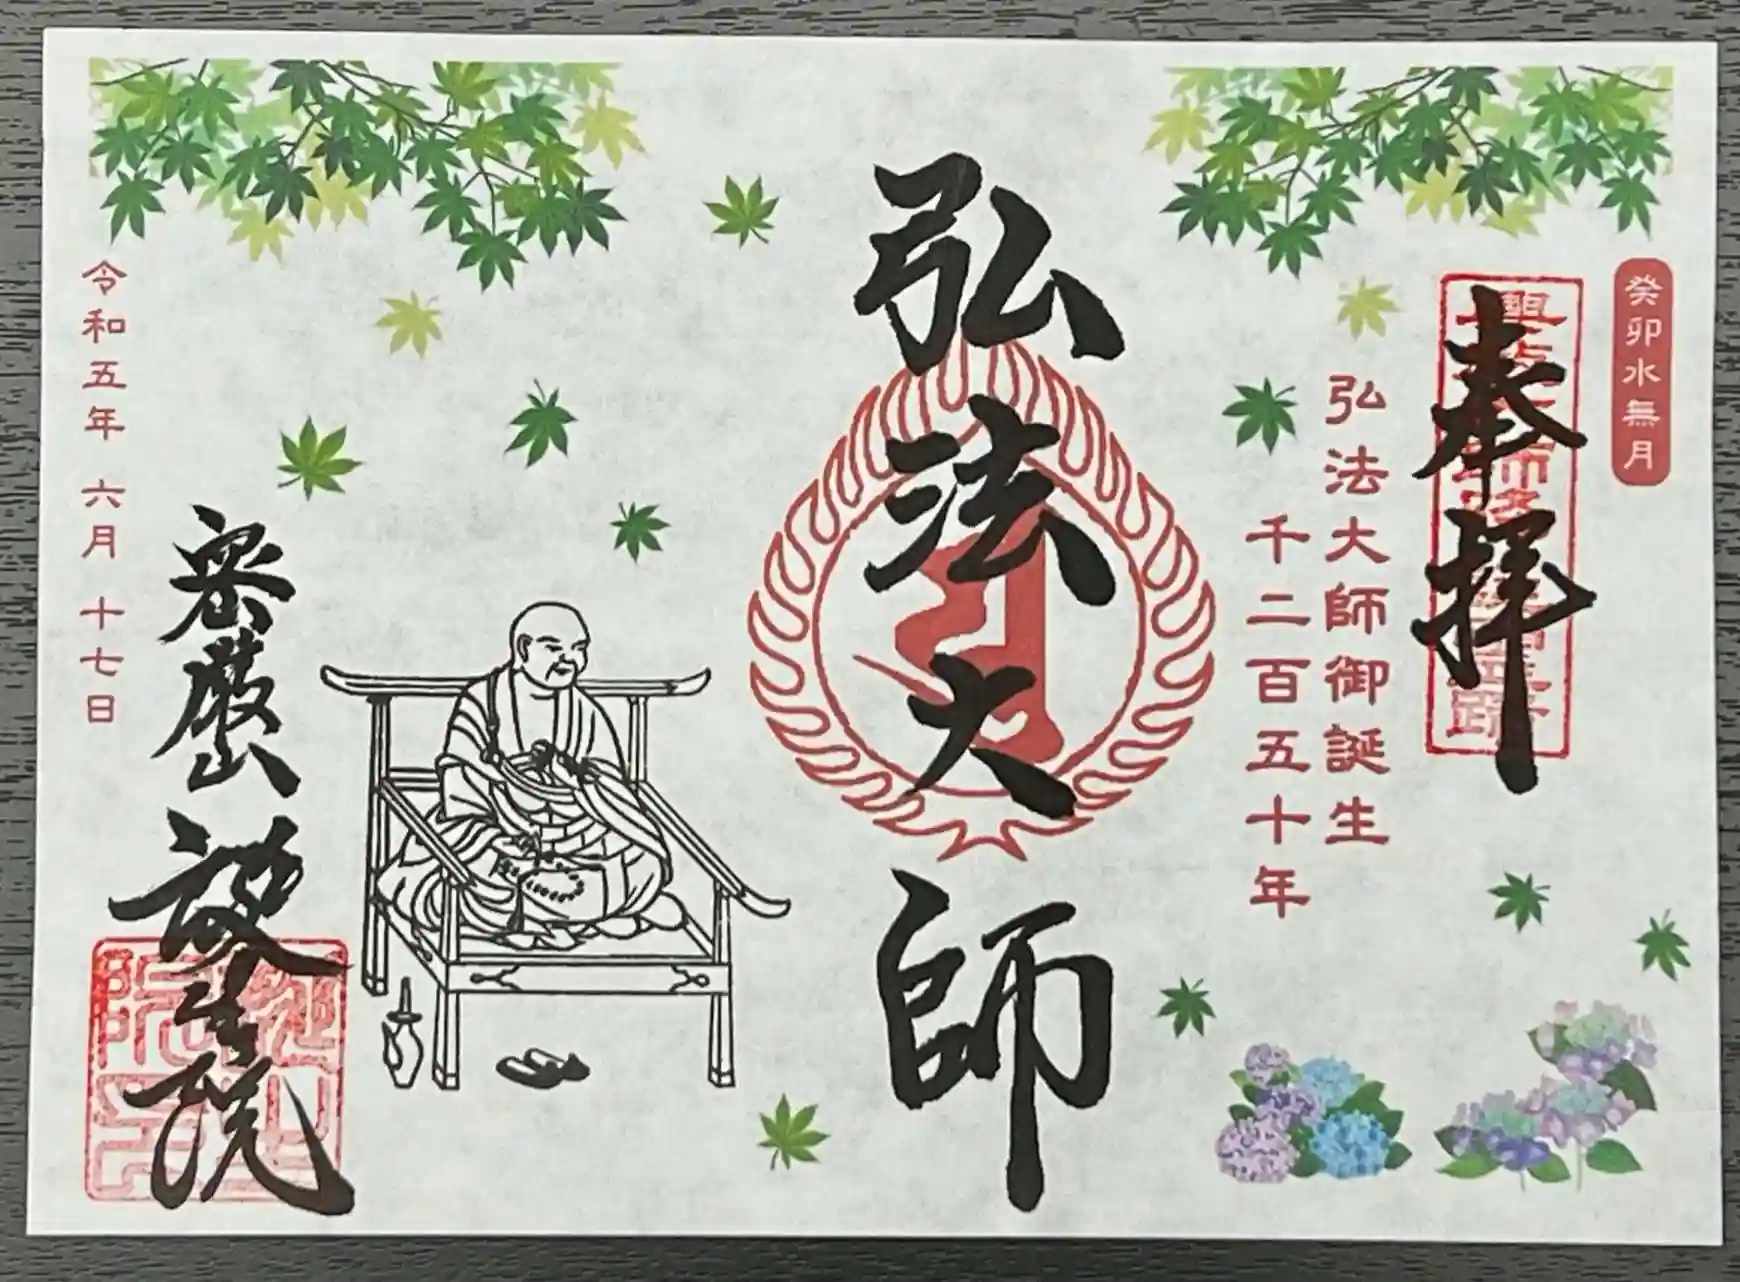 癸卯水無月
奉拝
弘法大師御誕生
千二百五十年
弘法大師
密厳山 誕生院
令和五年 六月 十七日